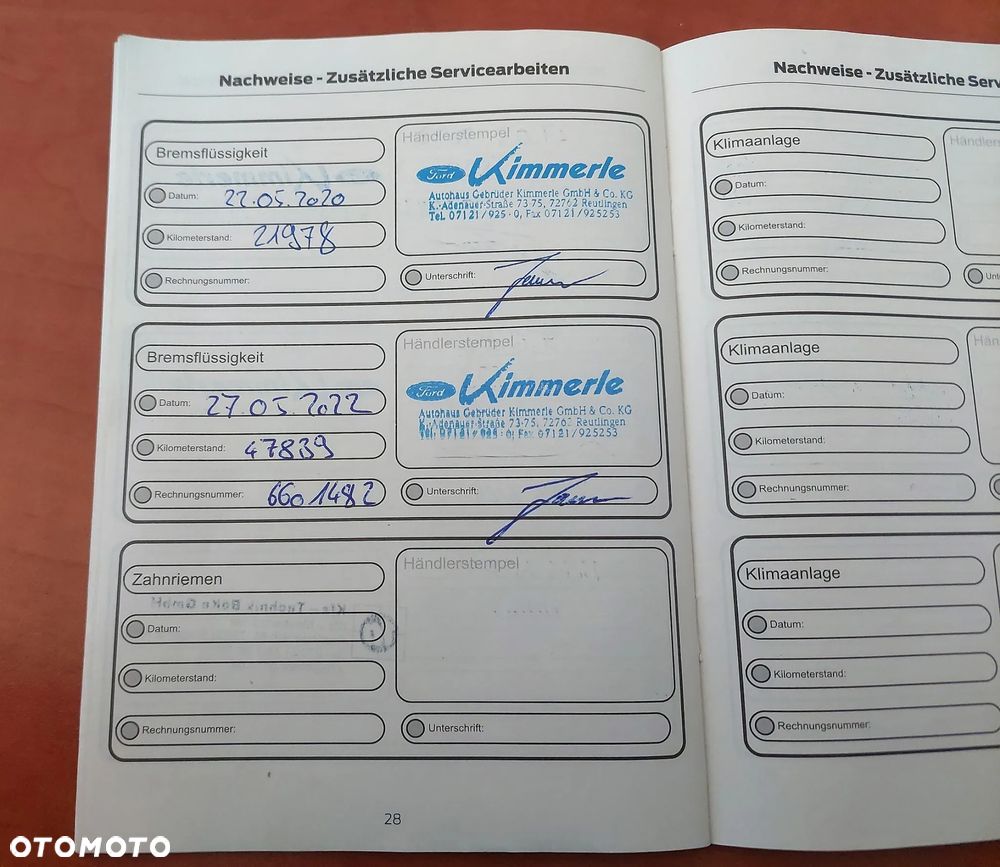 Nachweise - Zusätzliche Servicearbeiten
Bremsflüssigkeit
Datum: 22.05.2020
Kilometerstand: 21978
Rechnungsnummer:
Händlerstempel
Ford Kimmerle
Autohaus Gebrüder Kimmerle GmbH & Co. KG
K.-Adenauer-Straße 73-75, 72762 Reutlingen
Tel. 07121/925-0, Fax 07121/925253
Unterschrift:
Bremsflüssigkeit
Datum: 27.05.2022
Kilometerstand: 47839
Rechnungsnummer: 6601482
Händlerstempel
Ford Kimmerle
Autohaus Gebrüder Kimmerle GmbH & Co. KG
K.-Adenauer-Straße 73-75, 72762 Reutlingen
Tel. 07121/925-0, Fax 07121/925253
Unterschrift:
Zahnriemen
Datum:
Kilometerstand:
Rechnungsnummer:
Händlerstempel
Unterschrift:
28
Nachweise - Zusätzliche Serv
Klimaanlage
Datum:
Kilometerstand:
Rechnungsnummer:
Händlers
Unt
Klimaanlage
Datum:
Kilometerstand:
Rechnungsnummer:
Hän
Klimaanlage
Datum:
Kilometerstand:
Rechnungsnummer:
OTOMOTO